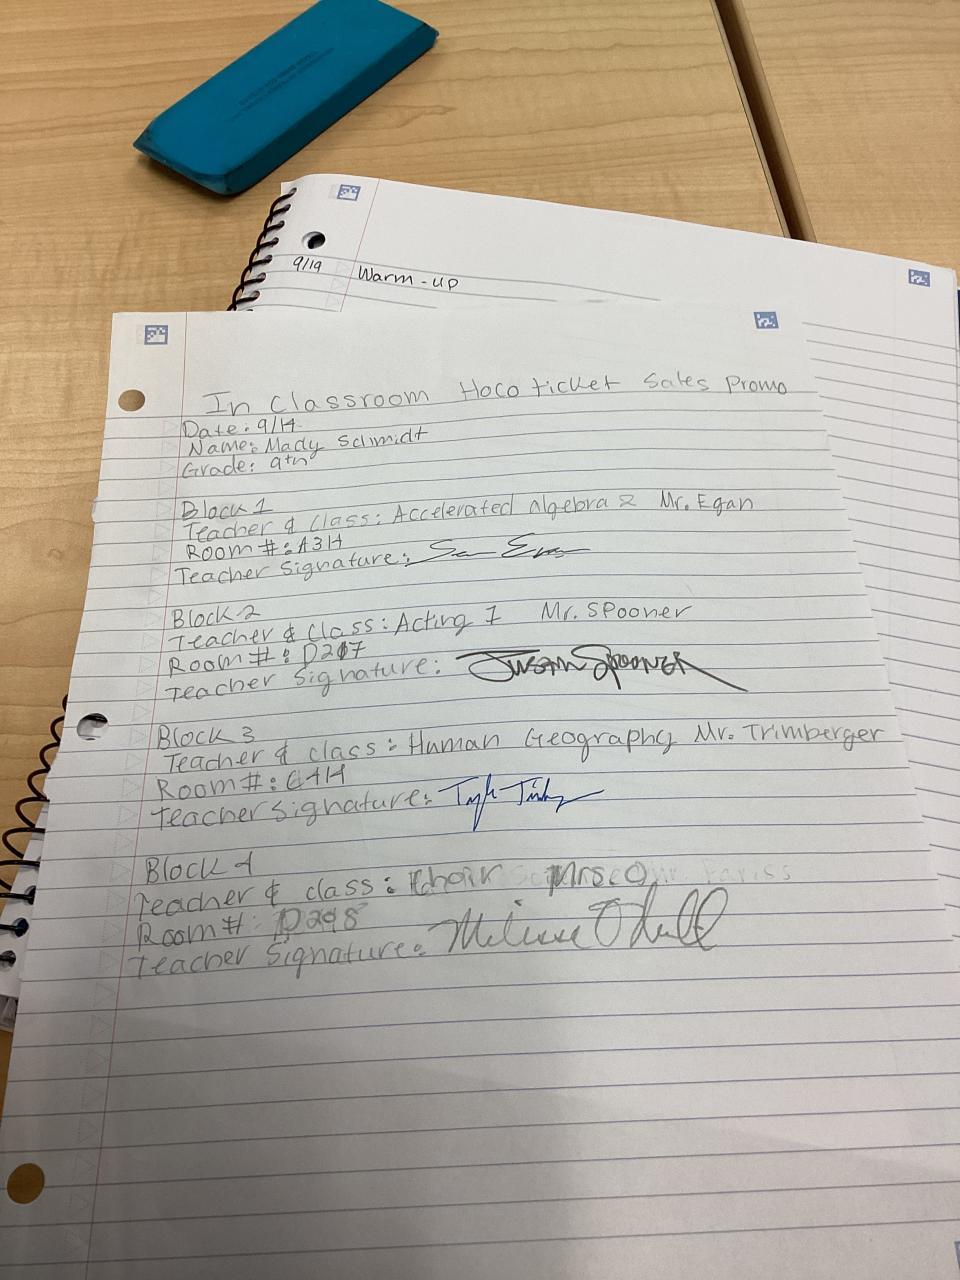 9/19 Warm-up
In Classroom Hoco ticket Sales Promo
Date: 9/14
Name: Mady Schmidt
Grade: 9th
Block 1
Teacher & Class: Accelerated algebra 2 Mr. Egan
Room #: A314
Teacher Signature:
Block 2
Teacher & Class: Acting 1 Mr. Spooner
Room #: D207
Teacher Signature: Spooner
Block 3
Teacher & class: Human Geography Mr. Trimberger
Room #:
Teacher Signature:
Block 4
Teacher & class: Choir Mrs. O
Room #: D298
Teacher Signature: